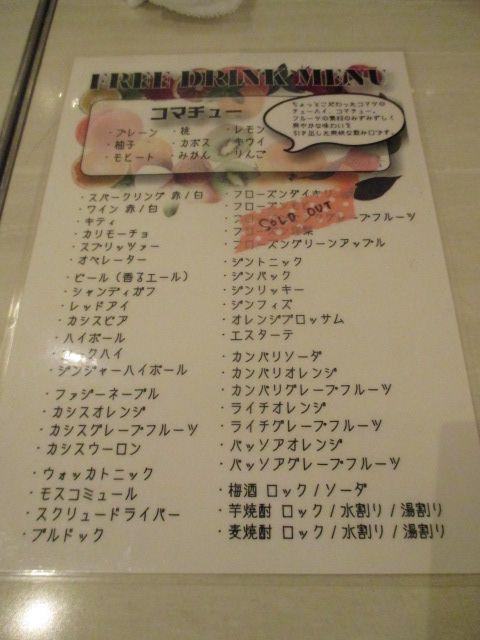 FREE DRINK MENU
コマチュー
・プレーン ・桃 ・レモン
・柚子 ・カボス ・キウイ
・モヒート ・みかん ・りんご
ちょっとこだわったコマツの
チューハイ、コマチュー。
フルーツの素材のみずみずしく
爽やかな味わいを
引き出した爽快な飲み口です。
・スパークリング 赤/白
・ワイン 赤/白
・キティ
・カリモーチョ
・スプリッツァー
・オペレーター
・ビール (香るエール)
・シャンディガフ
・レッドアイ
・カシスビア
・ハイボール
ハイ
・ジンジャーハイボール
・ファジーネーブル
・カシスオレンジ
・カシスグレープフルーツ
・カシスウーロン
・ウォッカトニック
・モスコミュール
・スクリュードライバー
・ブルドック
・フローズンダイキリ
・フローズン
SOLD OUT
グレープフルーツ
・フローズングリーンアップル
・ジントニック
・ジンバック
・ジンリッキー
・ジンフィズ
・オレンジブロッサム
・エスターテ
・カンパリソーダ
・カンパリオレンジ
・カンパリグレープフルーツ
・ライチオレンジ
・ライチグレープフルーツ
・パッソアオレンジ
・パッソアグレープフルーツ
・梅酒 ロック/ソーダ
・芋焼酎 ロック/水割り/湯割り
・麦焼酎 ロック/水割り/湯割り